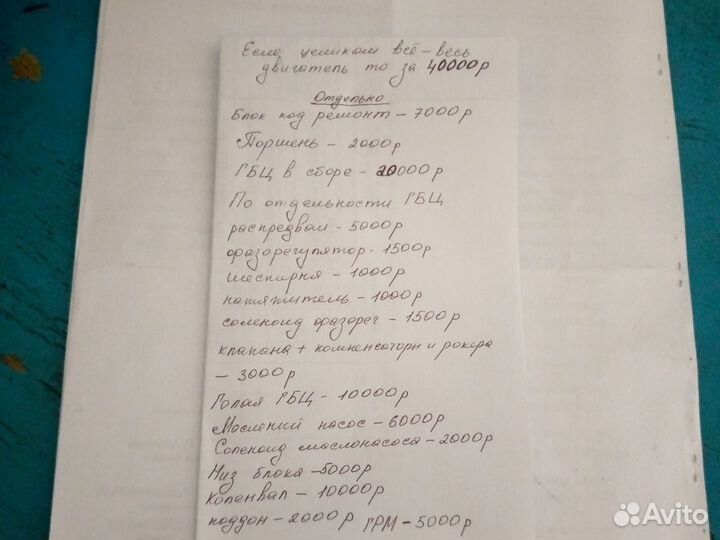 Если целиком всё – весь
двигатель то за 40000р
Отдельно
Блок под ремонт – 7000р
Поршень – 2000р
ГБЦ в сборе – 20000р
По отдельности ГБЦ
распредвал – 5000р
фазорегулятор – 1500р
шестирня – 1000р
натяжитель – 1000р
соленоид фазорег – 1500р
клапана + компенсаторы и рокера
– 3000р
Голая ГБЦ – 10000р
Масленый насос – 6000р
Соленоид маслонасоса – 2000р
Низ блока – 5000р
Коленвал – 10000р
поддон – 2000р ГРМ – 5000р
Avito